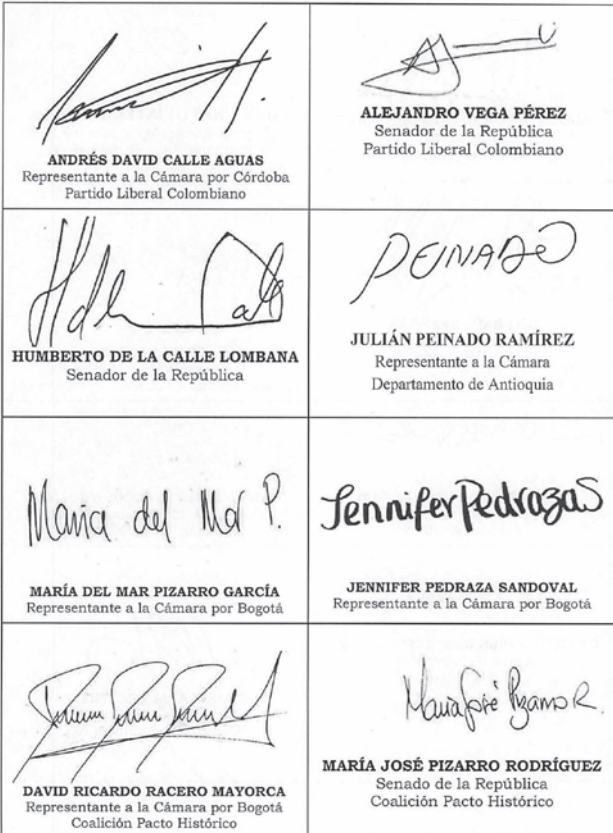 ANDRÉS DAVID CALLE AGUAS
Representante a la Cámara por Córdoba
Partido Liberal Colombiano
ALEJANDRO VEGA PÉREZ
Senador de la República
Partido Liberal Colombiano
HUMBERTO DE LA CALLE LOMBANA
Senador de la República
PEINADO
JULIÁN PEINADO RAMÍREZ
Representante a la Cámara
Departamento de Antioquia
Maria del Mar P.
MARÍA DEL MAR PIZARRO GARCÍA
Representante a la Cámara por Bogotá
Jennifer Pedraza S
JENNIFER PEDRAZA SANDOVAL
Representante a la Cámara por Bogotá
DAVID RICARDO RACERO MAYORCA
Representante a la Cámara por Bogotá
Coalición Pacto Histórico
María José Pizarro R.
MARÍA JOSÉ PIZARRO RODRÍGUEZ
Senado de la República
Coalición Pacto Histórico